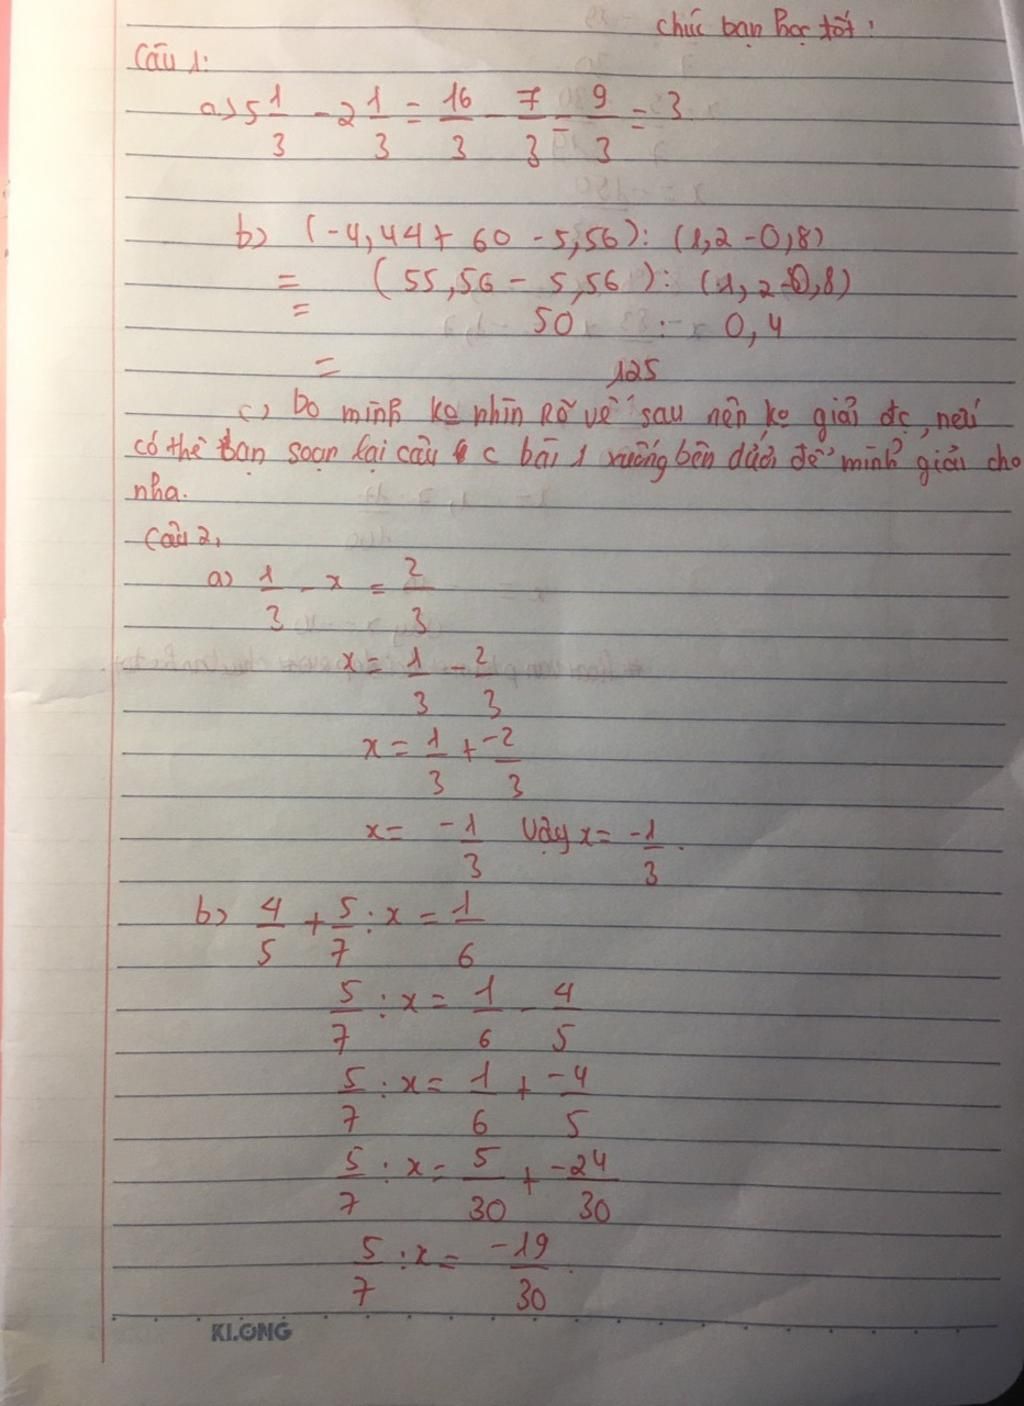 chúc bạn học tốt!
Câu 1:
a) 5 1/3 - 2 1/3 = 16/3 - 7/3 = 9/3 = 3
b) (-4,44 + 60 - 5,56) : (1,2 - 0,8)
= (55,56 - 5,56) : (1,2 - 0,8)
= 50 : 0,4
= 125
c) Do mình ko nhìn rõ vế sau nên ko giải đc, nếu
có thể bạn soạn lại câu c bài 1 xuống bên dưới để mình giải cho
nha.
Câu 2,
a) 1/3 - x = 2/3
x = 1/3 - 2/3
x = 1/3 + -2/3
x = -1/3 Vậy x = -1/3.
b) 4/5 + 5/7 : x = 1/6
5/7 : x = 1/6 - 4/5
5/7 : x = 1/6 + -4/5
5/7 : x = 5/30 + -24/30
5/7 : x = -19/30
KLONG